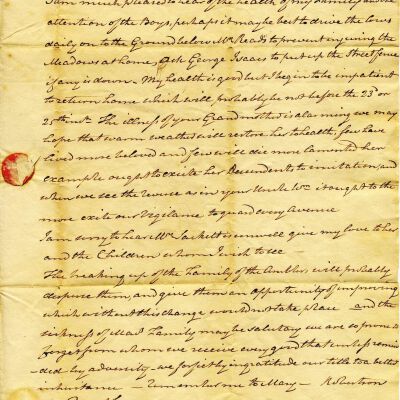 I am much pleased to hear of the health of my family and the
attention of the Boys, perhaps it may be best to drive the cows
daily on to the Ground below Mr Reads to prevent injuring the
Meadows at home, Ask George Isaacs to put up the Street fence
if any is down — My health is good but I begin to be impatient
to return home which will probably be not before the 23d or
25th inst. The illness of your Grandmother is alarming we may
hope that warm weather will restore her to health, few have
lived more beloved and few will die more lamented her
example ought to excite her Descendents to imitation and
when we see the reverse as in your Uncle Wm it ought to the
more exite our Vigilance to guard every Avenue
I am sorry to hear Mrs Sackett is unwell give my love to her
and the Children whom I wish to see
The breaking up of the Family of the will probably
disperse them, and give them an opportunity of improving
which without this change would not take place — and the
sickness of Family may be salutary we are so prone to
forget from whom we receive every good that unless remin
-ded by adversity — we forfeit by ingratitude our title to a better
inheritance — Remember me to Mary —